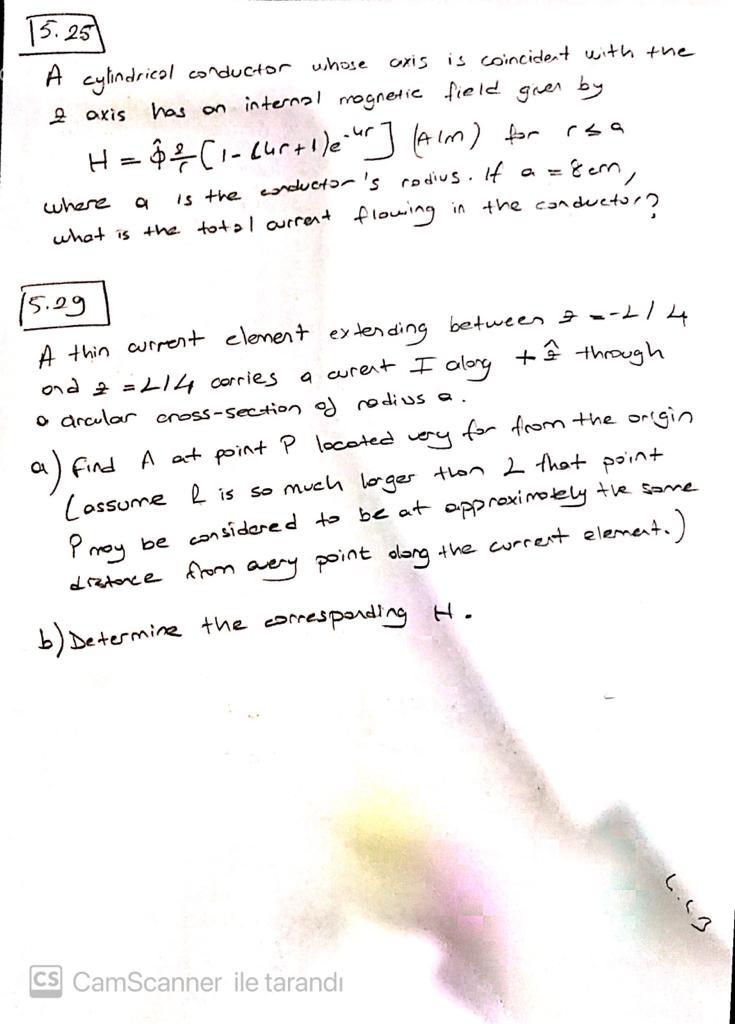 5.25
A cylindrical conductor whose axis is coincident with the
z axis has an internal magnetic field given by
H = φ̂ 2/r [1-(4r+1)e^-4r] (A/m) for r≤a
where a is the conductor's radius. If a = 8cm,
what is the total current flowing in the conductor?
5.29
A thin current element extending between z = -L/4
and z = L/4 carries a curent I along +ẑ through
a circular cross-section of radius a.
a) Find A at point P located very far from the origin
(assume R is so much larger than L that point
P may be considered to be at approximately the same
distance from every point along the current element.)
b) Determine the corresponding H.
CS CamScanner ile tarandı